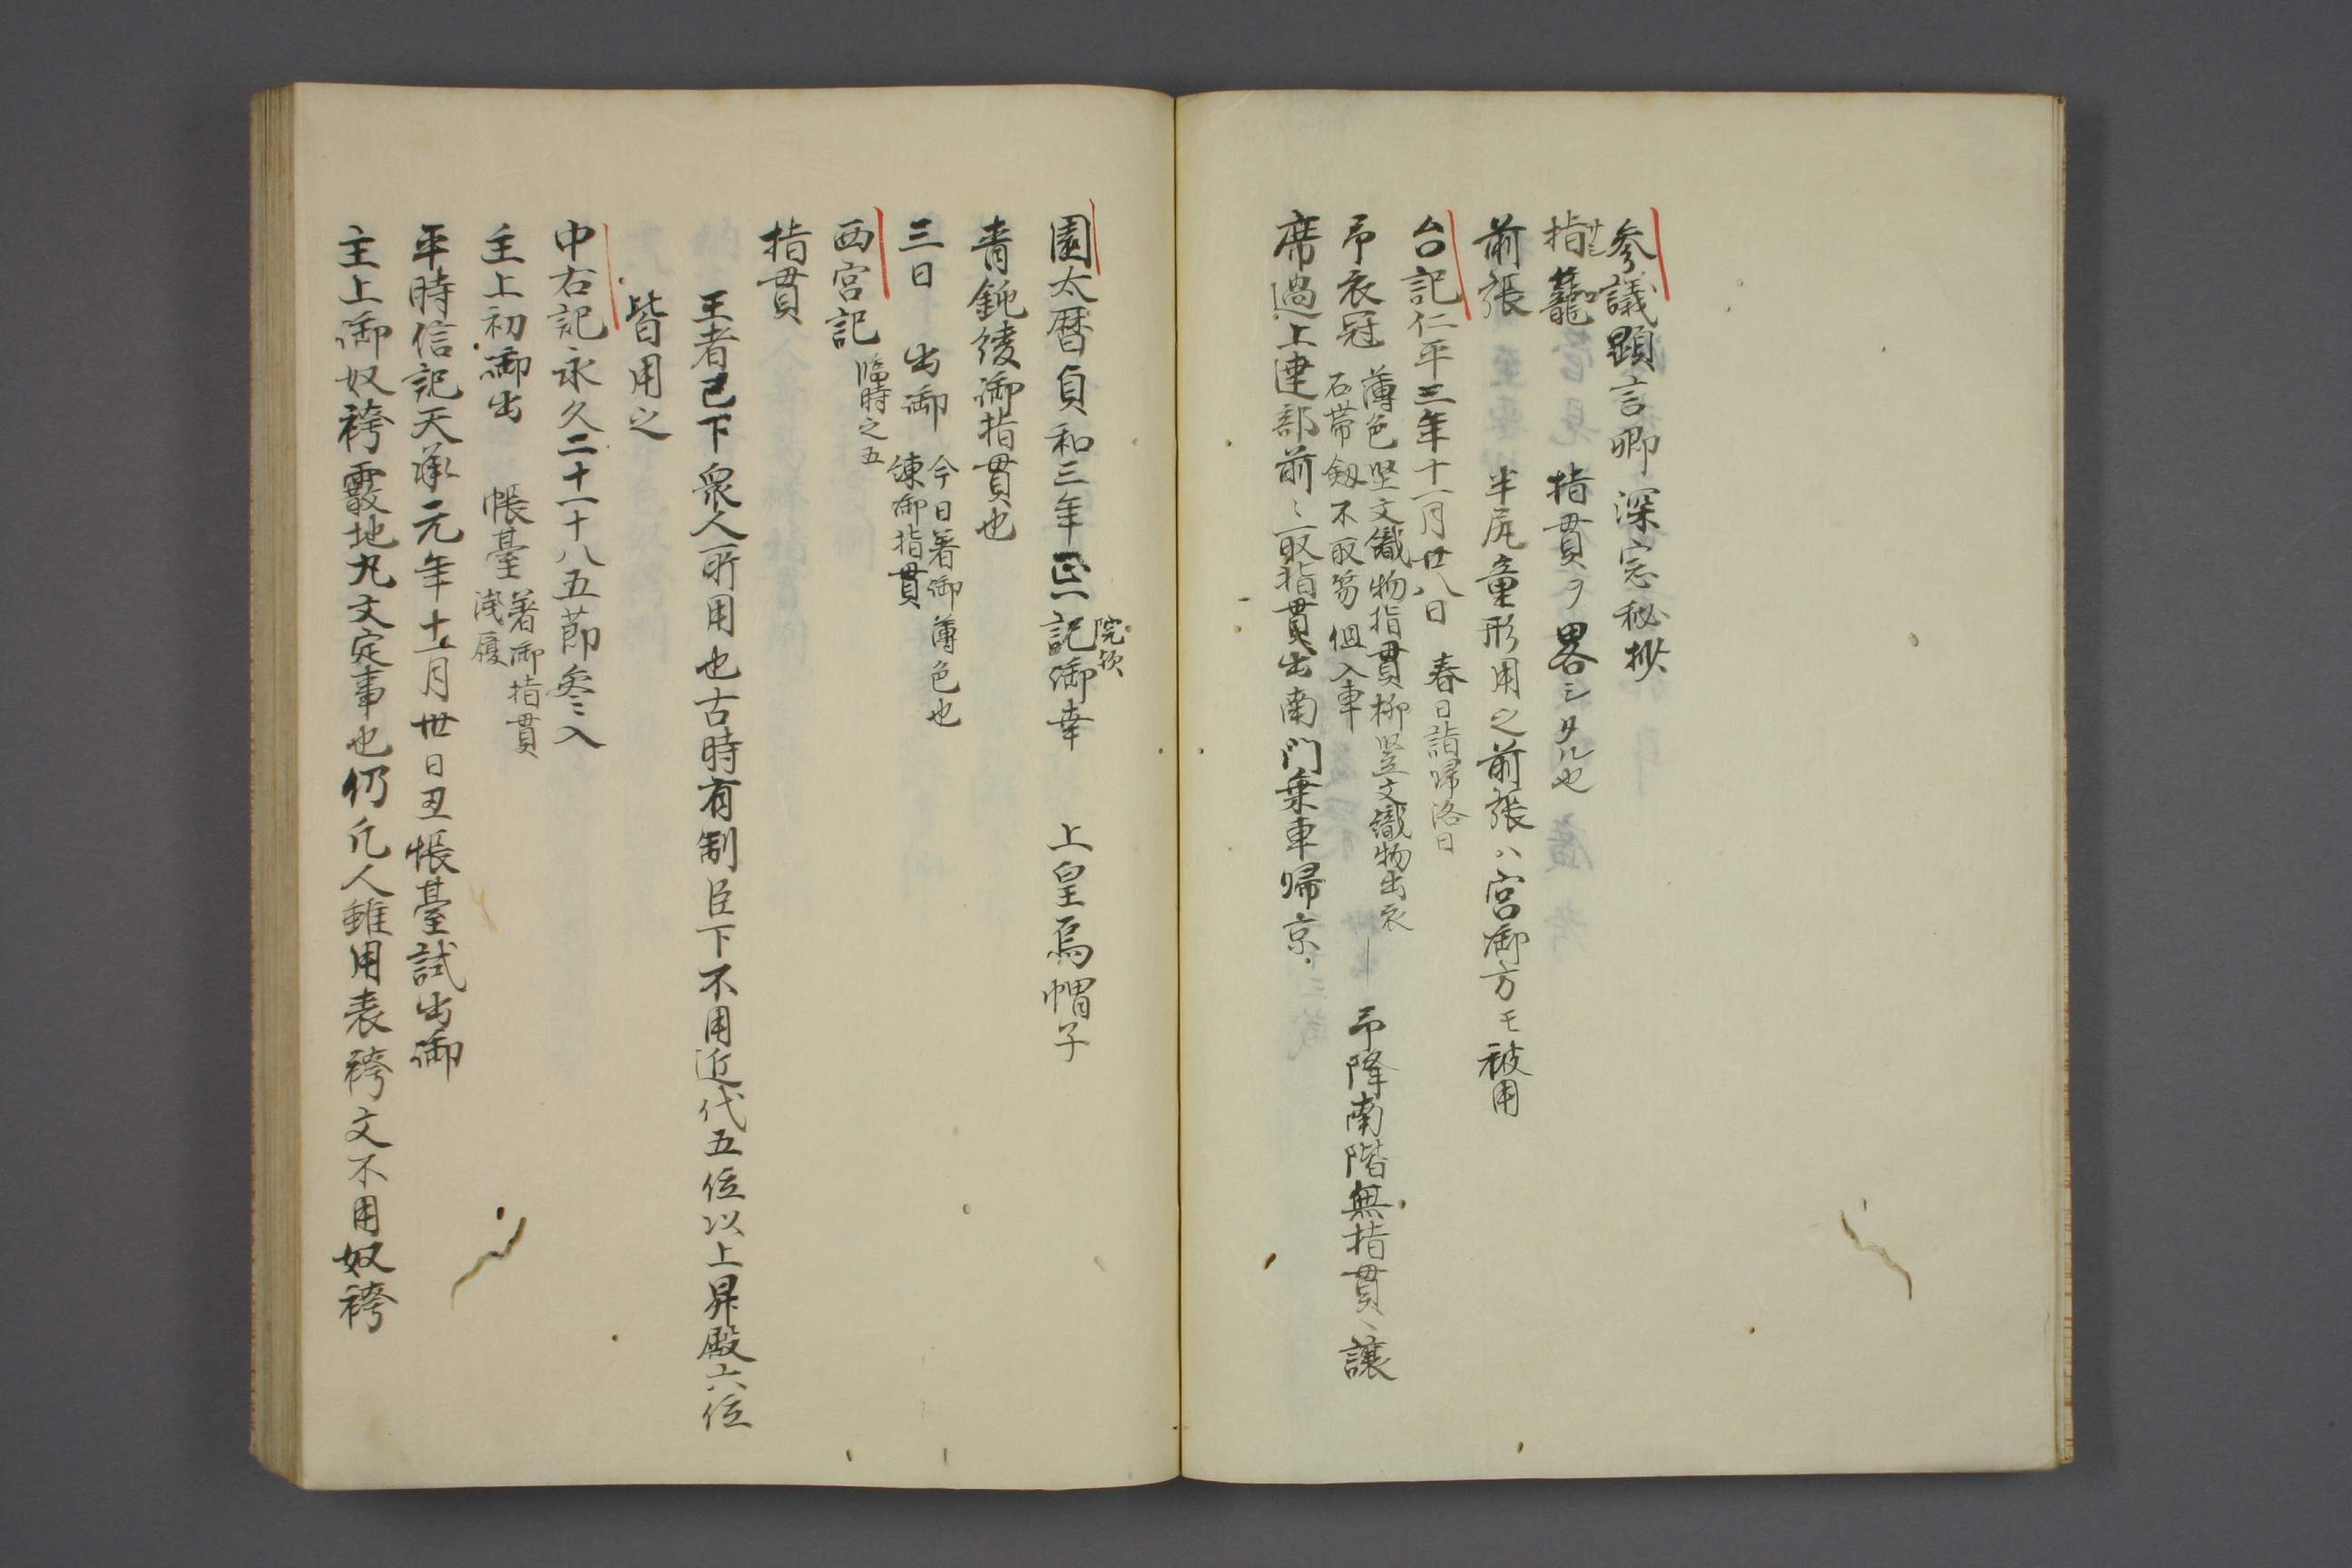 参議顕言卿深窓秘抄
指籠 指貫ヲ畧シタル也
サシ
前張 半尻童形用之前張ハ宮御方モ被用
台記仁平三年十一月廿八日 春日詣帰洛日
予衣冠 薄色堅文織物指貫柳竪文織物出衣
石帯劔不取笏 但入車
予降南階無指貫、譲
席過上達部前ミ取指貫出南門乗車帰京
園太暦貞和三年正一記御幸 上皇烏帽子
院
青鈍綾御指貫也
三日 出御 今日著御薄色也
練御指貫
西宮記 臨時之五
指貫
王者已下衆人所用也古時有制臣下不用近代五位以上昇殿六位
皆用之
中右記永久二十一十八五莭参入
主上初御出 帳臺 著御指貫
浅履
平時信記天承元年十一月廿日丑帳臺試出御
主上御奴袴霰地丸文定事也仍凢人雖用表袴文不用奴袴